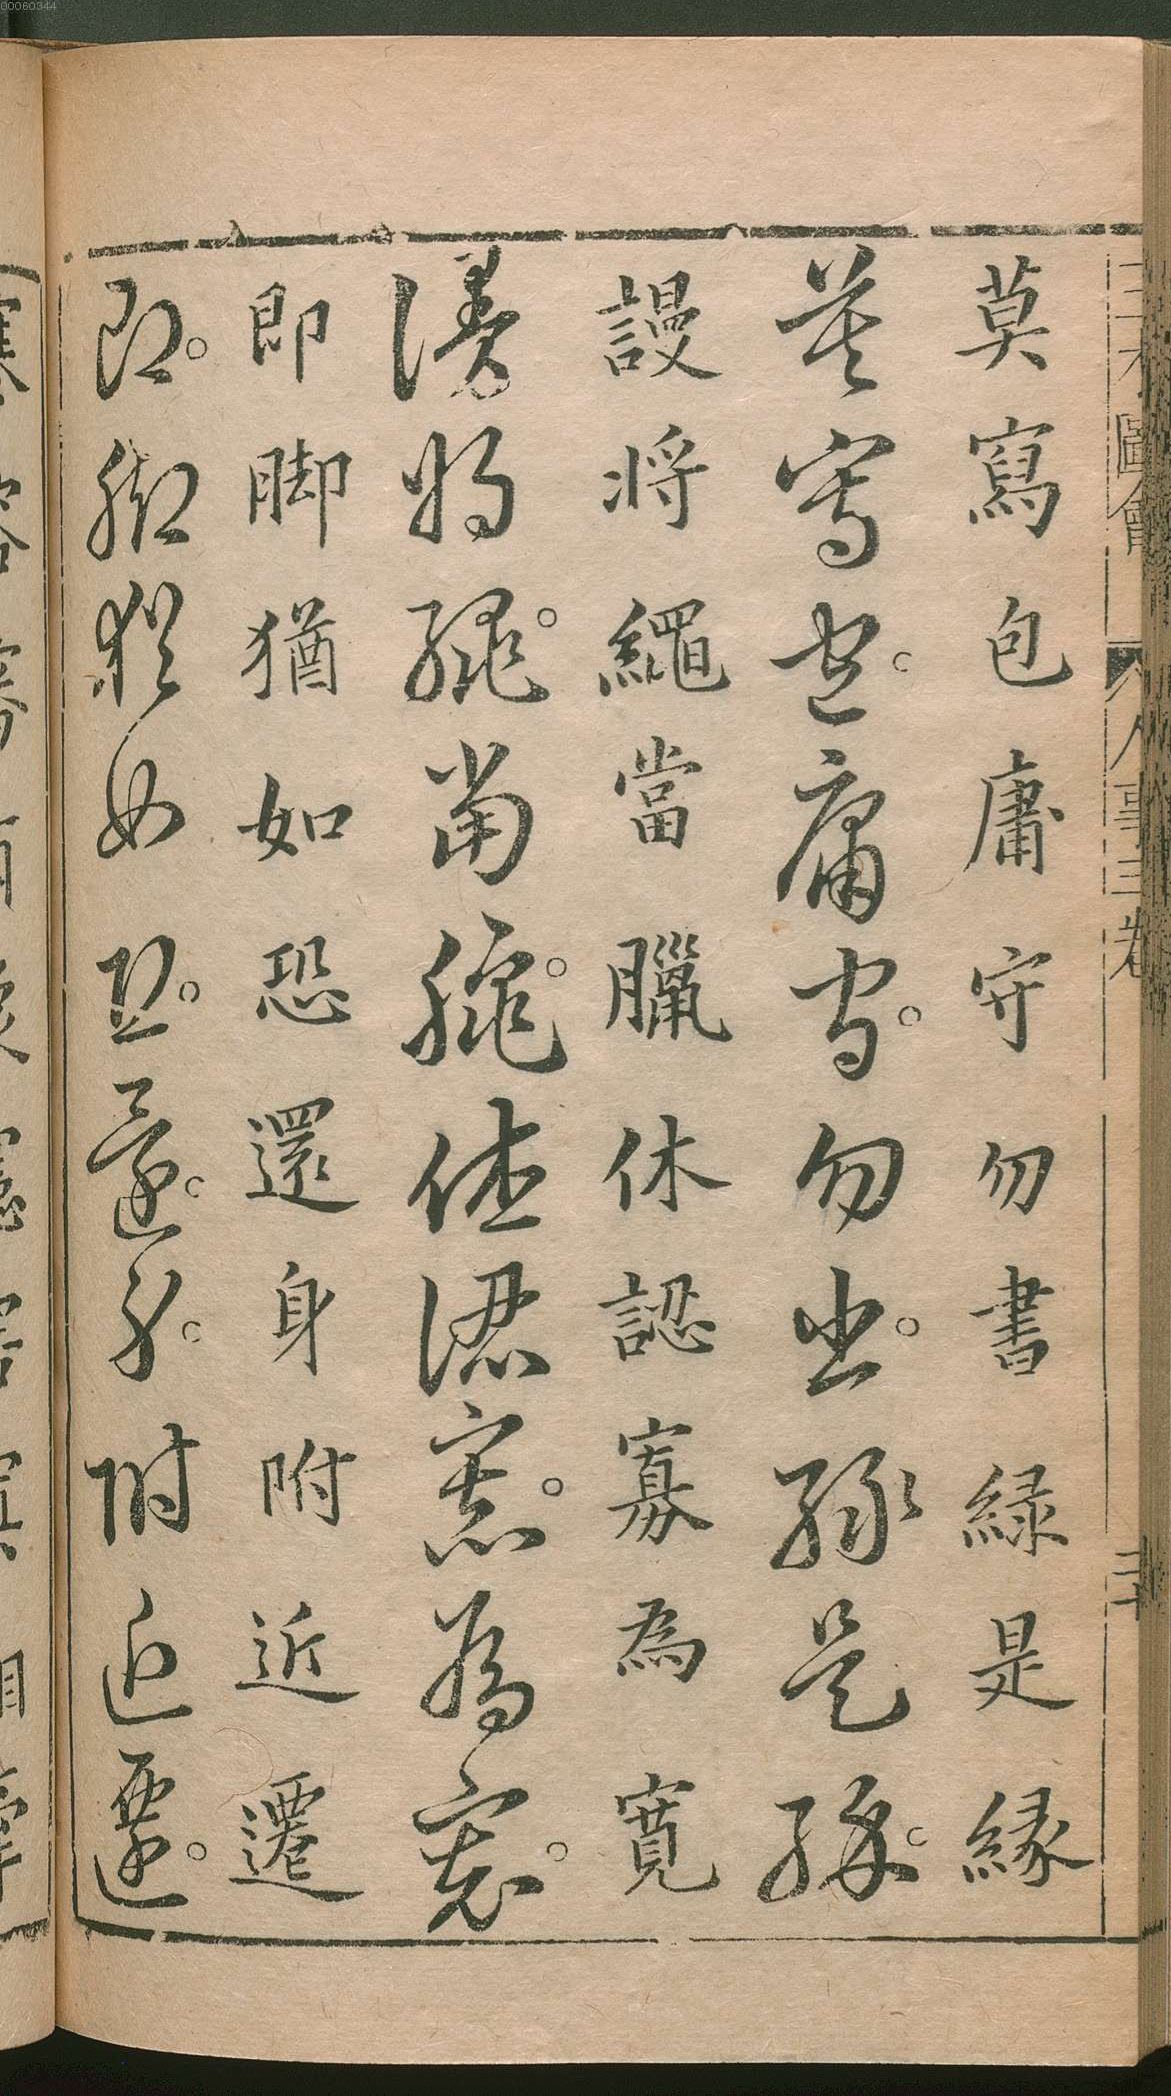 00060344
三才圖會 人事三卷 三十
莫寫包庸守勿書緑是緣
莫寫包庸守勿書緑是緣
謾將繩當臘休認寡為寬
謾將繩當臘休認寡為寬
即脚猶如恐還身附近遷
即脚猶如恐還身附近遷